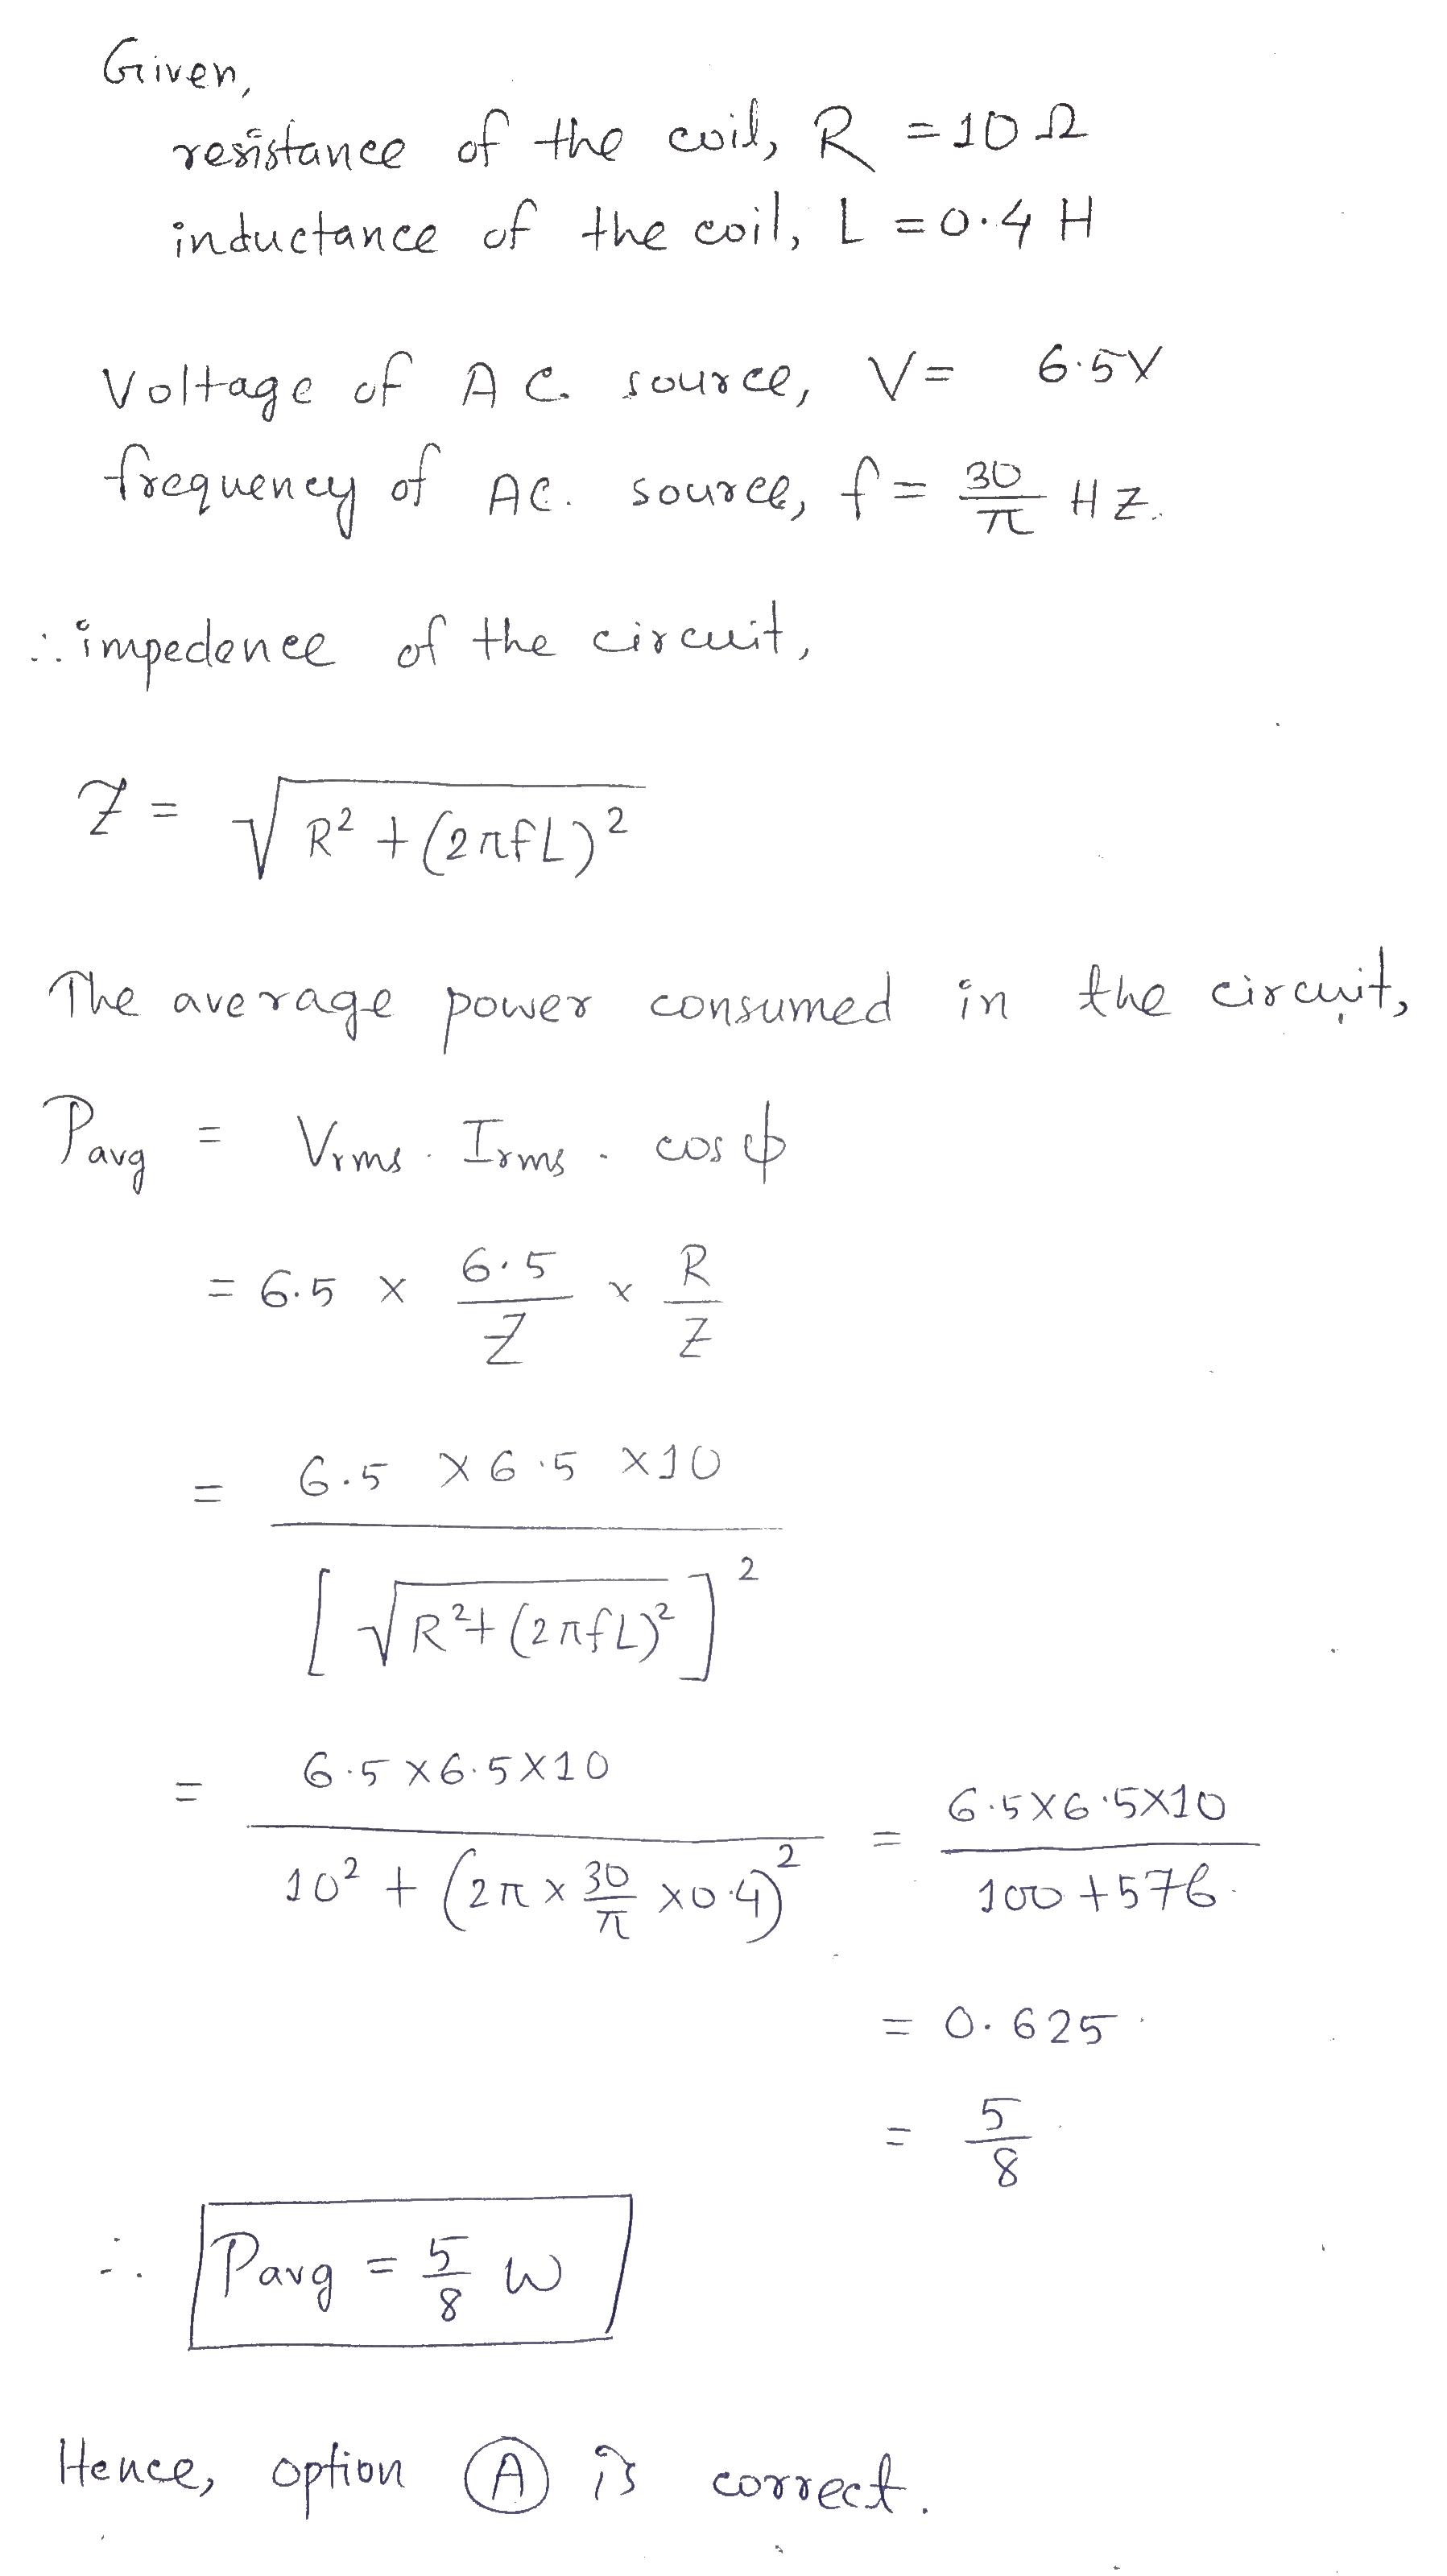 Given,
resistance of the coil, R = 10 Ω
inductance of the coil, L = 0.4 H
Voltage of A C. source, V = 6.5V
frequency of AC. source, f = 30/π HZ.
∴ impedence of the circuit,
Z = √(R² + (2πfL)²)
The average power consumed in the circuit,
Pavg = Vrms . Irms . cos ϕ
= 6.5 × 6.5/Z × R/Z
= 6.5 × 6.5 × 10 / [√(R² + (2πfL)²)]²
= 6.5 × 6.5 × 10 / 10² + (2π × 30/π × 0.4)² = 6.5 × 6.5 × 10 / 100 + 576
= 0.625
= 5/8
∴ Pavg = 5/8 W
Hence, option (A) is correct.